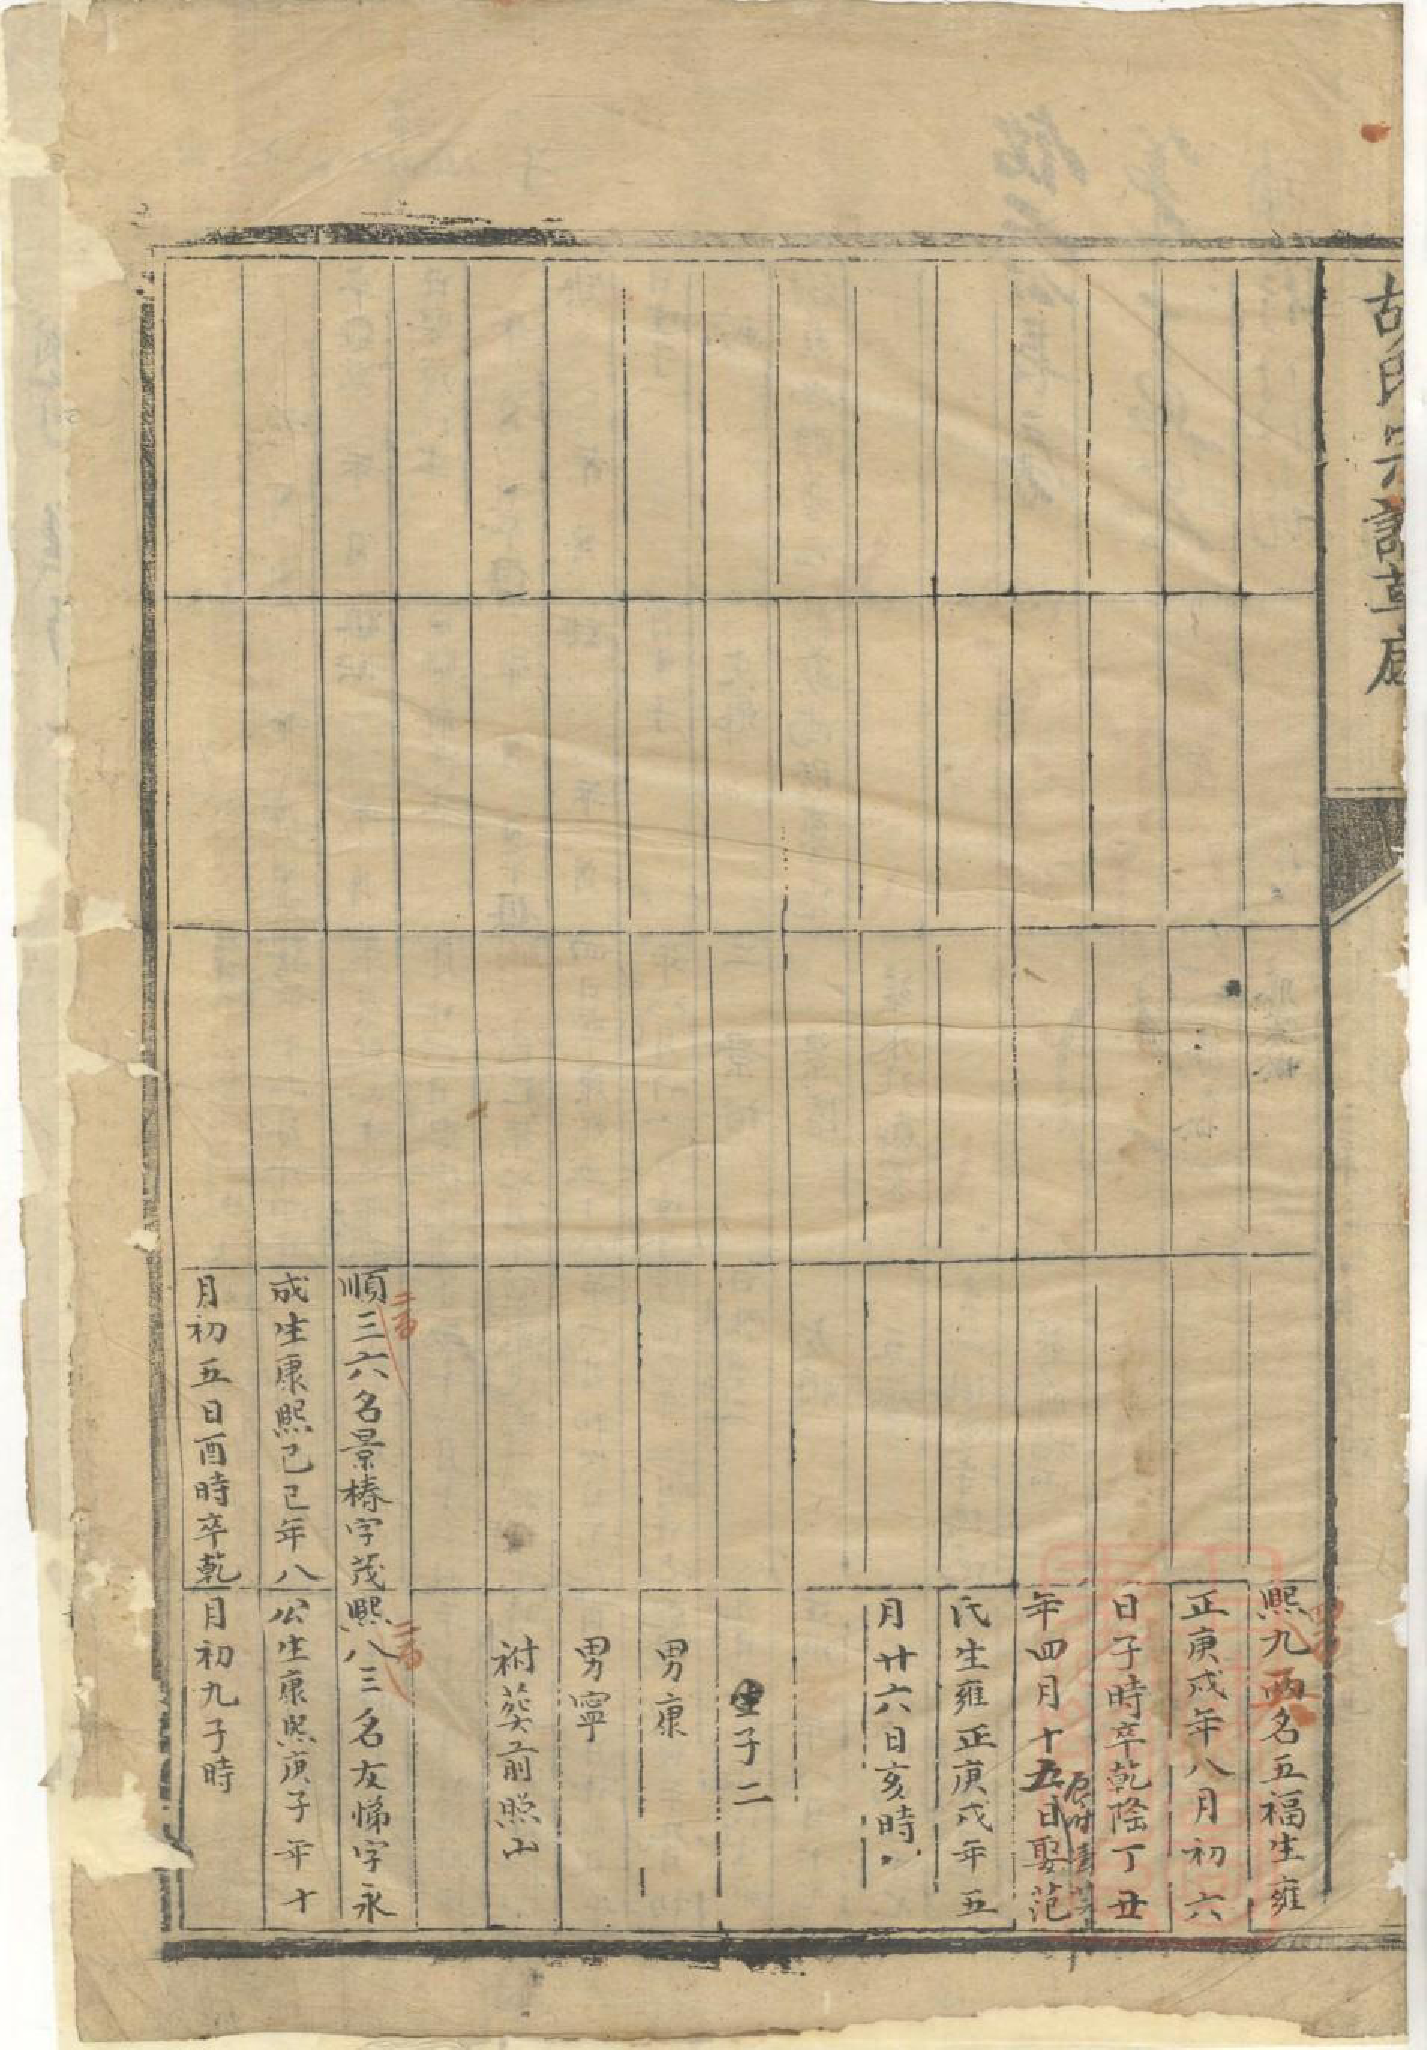 胡氏宗譜草底
熙九兩名五福生雍
正庚戌年八月初六
日子時卒乾隆丁丑
年四月十五日娶范
氏生雍正庚戌年五
月廿六日亥時
生子二
男康
男寧
祔葬前照山
順三六名景椿字茂
成生康熙己巳年八
月初五日酉時卒乾
熙八三名友悌字永
公生康熙庚子年十
月初九子時